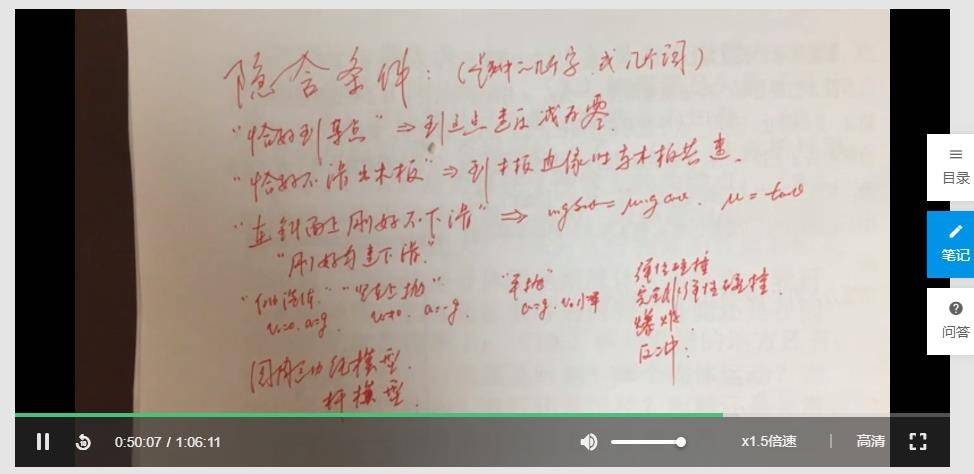 隐含条件：（题中一几个字 或 几个词）
"恰好到某点" ⇒ 到这点速度减为零.
"恰好不滑出木板" ⇒ 到木板边缘时与木板共速.
"在斜面上刚好不下滑" ⇒ mgsinθ=μmgcosθ. μ=tanθ
"刚好匀速下滑."
"自由落体." "竖直上抛" "平抛" 弹性碰撞
v₀=0. a=g. v₀≠0. a=-g. a=g. v₀水平 完全非弹性碰撞.
爆炸
反冲：
圆周运动 绳模型.
杆模型.
目录
笔记
问答
0:50:07 / 1:06:11
x1.5倍速
高清